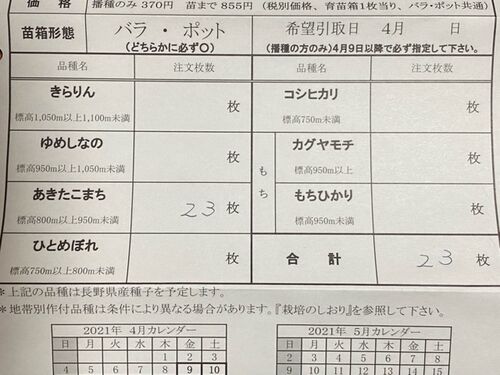 価格 播種のみ 370円 苗まで 855円 (税別価格、育苗箱1枚当り、バラ・ポット共通)
苗箱形態 バラ ・ ポット 希望引取日 4月 日
(どちらかに必ず○) (播種の方のみ)4月9日以降で必ず指定して下さい。
品種名 注文枚数 品種名 注文枚数
きらりん 枚 コシヒカリ 枚
標高1,050m以上1,100m未満 標高750m未満
ゆめしなの 枚 もち カグヤモチ 枚
標高950m以上1,050m未満 標高950m以上
あきたこまち 23 枚 もちひかり 枚
標高800m以上950m未満 標高950m未満
ひとめぼれ 枚 合計 23 枚
標高750m以上800m未満
*上記の品種は長野県産種子を予定します。
*地帯別作付品種は条件により異なる場合があります。『栽培のしおり』を参照して下さい。
2021年 4月カレンダー 2021年 5月カレンダー
日 月 火 水 木 金 土 日 月 火 水 木 金 土
1 2 3 2 3 4 5 6 7 8
4 5 6 7 8 9 10 9 10 11 12 13 14 15